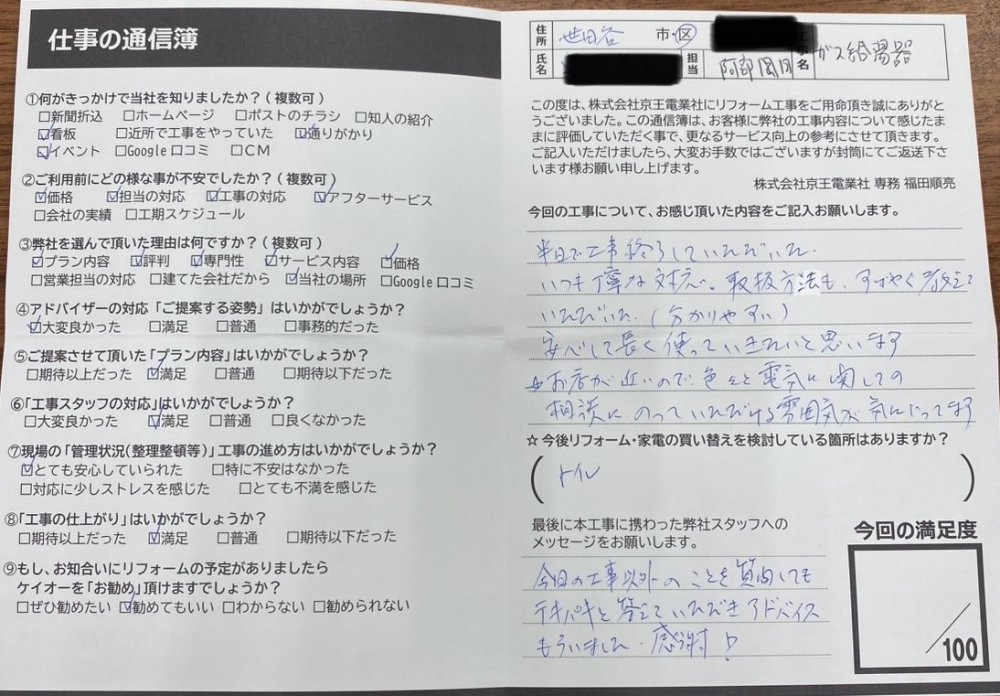 仕事の通信簿
①何がきっかけで当社を知りましたか?(複数可)
□新聞折込 □ホームページ □ポストのチラシ □知人の紹介
☑看板 □近所で工事をやっていた ☑通りがかり
☑イベント □Google口コミ □CM
②ご利用前にどの様な事が不安でしたか?(複数可)
☑価格 ☑担当の対応 ☑工事の対応 ☑アフターサービス
□会社の実績 □工期スケジュール
③弊社を選んで頂いた理由は何ですか?(複数可)
☑プラン内容 ☑評判 ☑専門性 ☑サービス内容 ☑価格
□営業担当の対応 □建てた会社だから ☑当社の場所 □Google口コミ
④アドバイザーの対応「ご提案する姿勢」はいかがでしょうか?
☑大変良かった □満足 □普通 □事務的だった
⑤ご提案させて頂いた「プラン内容」はいかがでしょうか?
□期待以上だった ☑満足 □普通 □期待以下だった
⑥「工事スタッフの対応」はいかがでしょうか?
□大変良かった ☑満足 □普通 □良くなかった
⑦現場の「管理状況(整理整頓等)」工事の進め方はいかがでしょうか?
☑とても安心していられた □特に不安はなかった
□対応に少しストレスを感じた □とても不満を感じた
⑧「工事の仕上がり」はいかがでしょうか?
□期待以上だった ☑満足 □普通 □期待以下だった
⑨もし、お知合いにリフォームの予定がありましたら
ケイオーを「お勧め」頂けますでしょうか?
□ぜひ勧めたい ☑勧めてもいい □わからない □勧められない
住所 世田谷 市・区
氏名 担当 阿部 名 ガス給湯器
この度は、株式会社京王電業社にリフォーム工事をご用命頂き誠にありがと
うございました。この通信簿は、お客様に弊社の工事内容について感じたま
まに評価していただく事で、更なるサービス向上の参考にさせて頂きます。
ご記入いただけましたら、大変お手数ではございますが封筒にてご返送下さ
います様お願い申し上げます。
株式会社京王電業社 専務 福田順亮
今回の工事について、お感じ頂いた内容をご記入お願いします。
半日で工事終了していただいた.
いつも丁寧な対応。取扱方法も、すばやく教えて
いただいた.(分かりやすい)
安心して長く使っていきたいと思います
☆お店が近いので色々と電気に関しての
相談にのっていただける雰囲気が気にいってます
☆今後リフォーム・家電の買い替えを検討している箇所はありますか?
(トイレ)
最後に本工事に携わった弊社スタッフへの
メッセージをお願いします。
今回の工事以外のことを質問しても
テキパキと答えていただきアドバイス
もらいました.感謝!
今回の満足度
/100